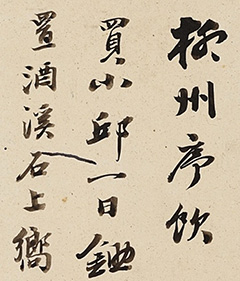 柳州序饮
買小邱一日鋤
置酒溪石上嚮